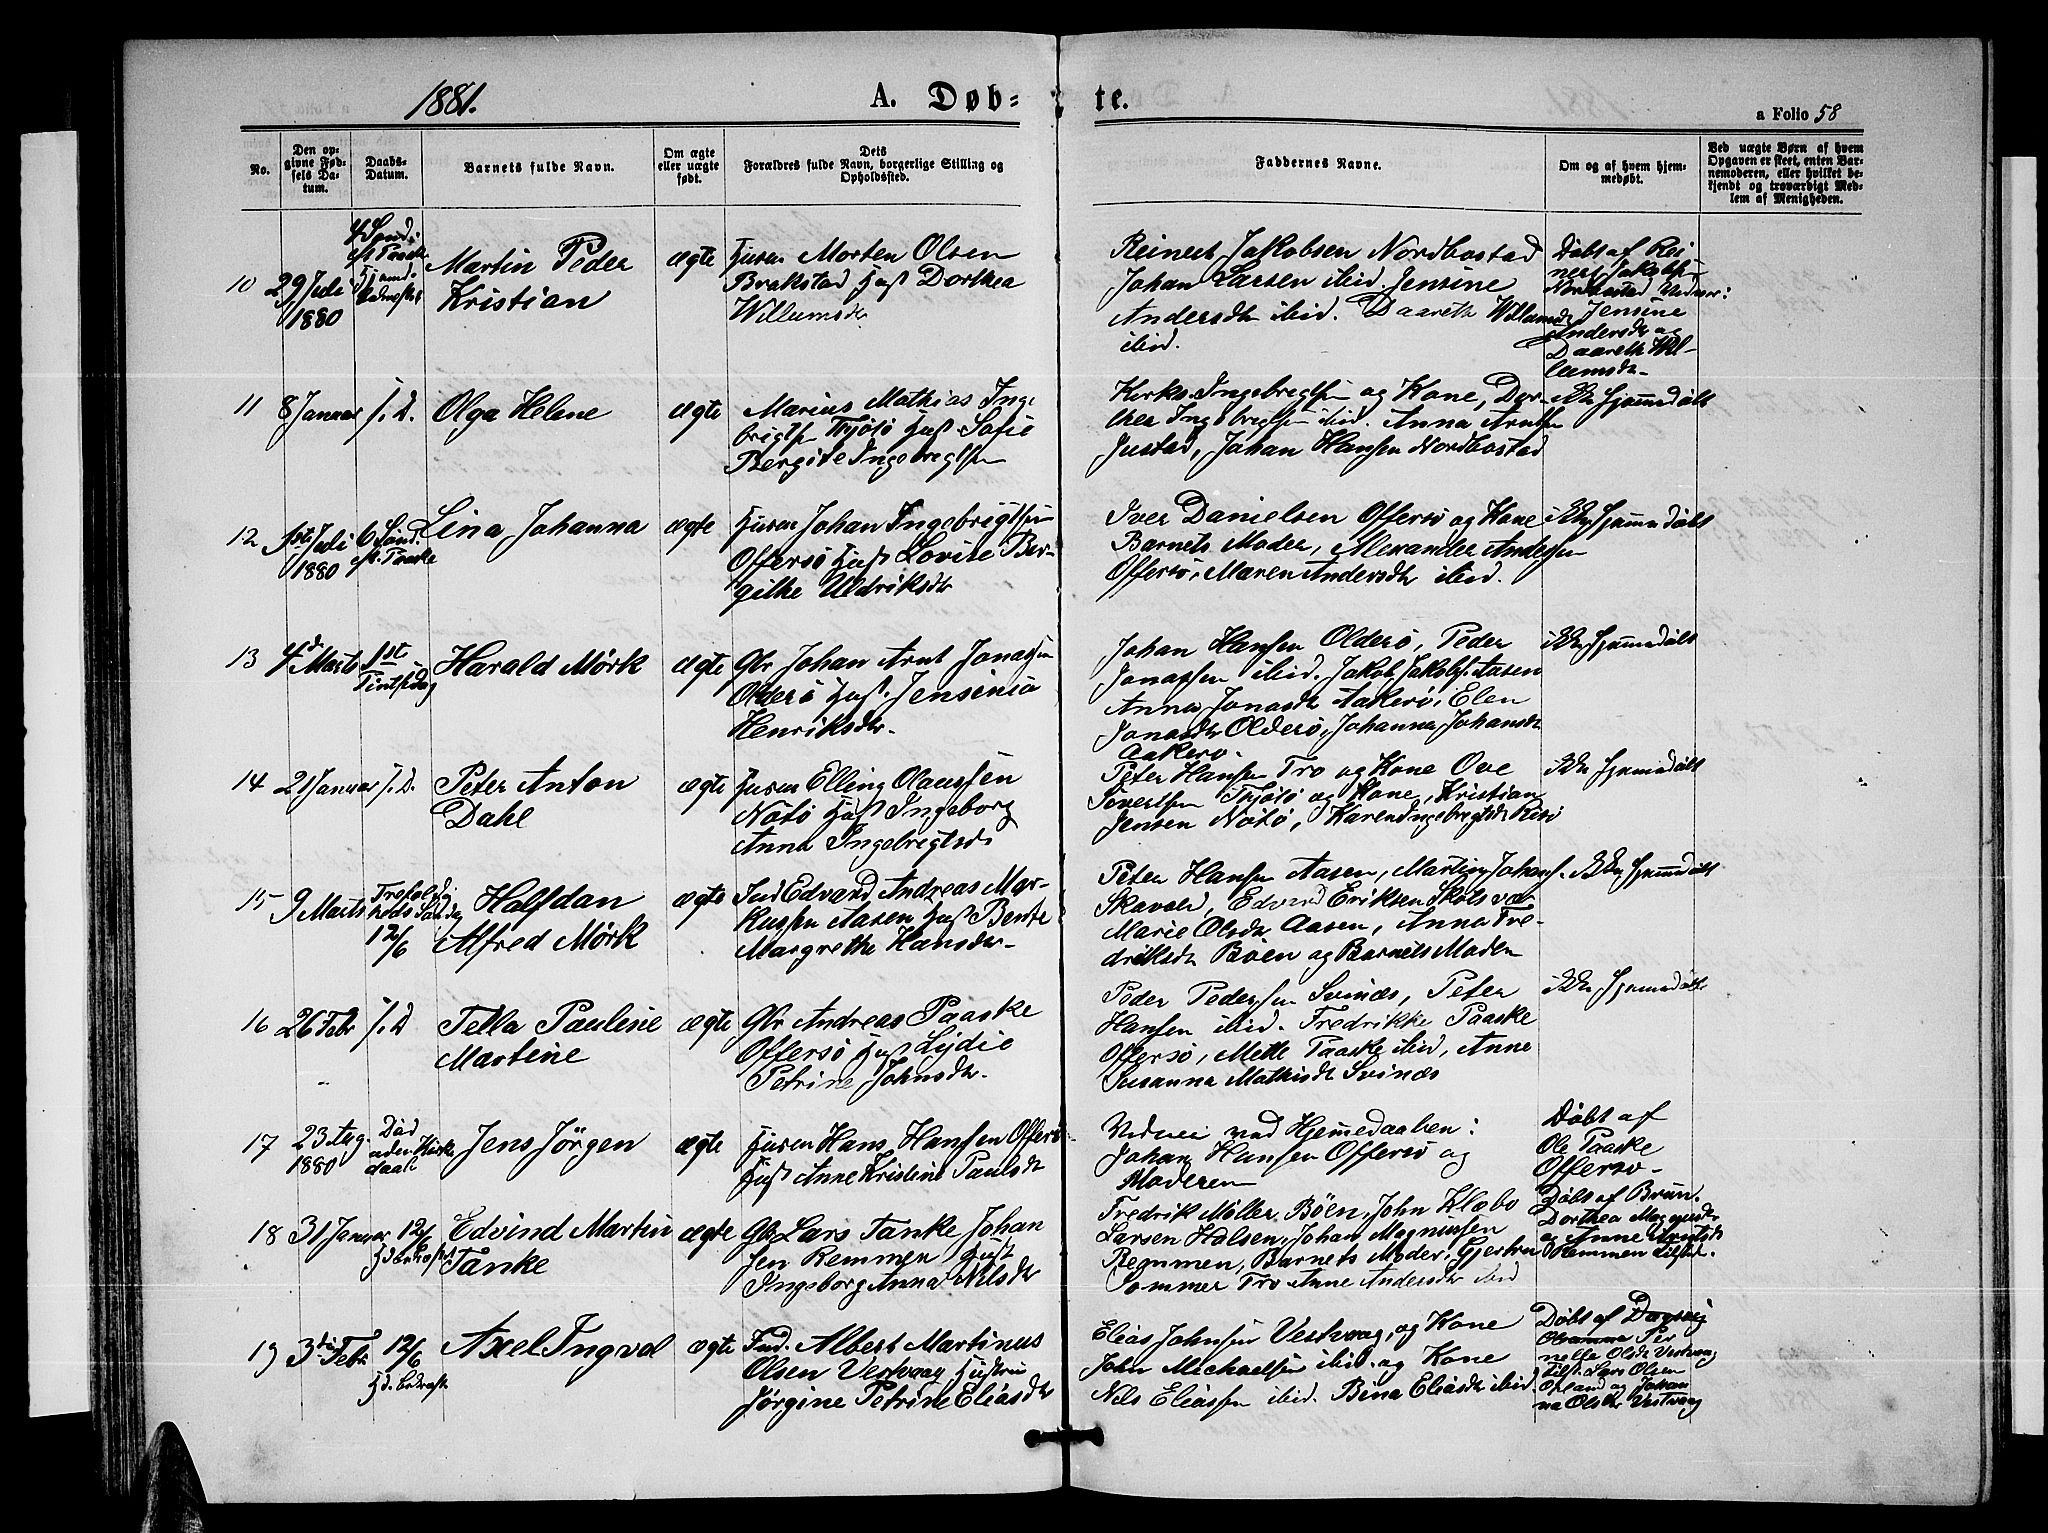 1881.
A. Døb-
te.
a Folio 58
No.
Den op-
givne Fød-
sels Da-
tum.
Daabs-
Datum.
Barnets fulde Navn.
Om ægte
eller uægte
født.
Dets
Forældres fulde Navn, borgerlige Stilling og
Opholdssted.
Faddernes Navne.
Om og af hvem hjem-
medøbt.
Ved uægte Børn af hvem
Opgaven er skeet, enten Bar-
nemoderen, eller hvilket be-
kjendt og troværdigt Med-
lem af Menigheden.
10
29 Juli
1880
4 Sønd:
eft Paaske
Hjemd.
Martin Peder
Kristian
ægte
Husm Morten Olsen
Brakstad Hust Dorthea
Willumsdr
Reinert Jakobsen Nordbostad
Johan Larsen ibid. Jensine
Andersdtr ibid. Daareth Willumsdr
ibid.
Døbt af Rei
nert Jakobsen
Nordbostad Vidner:
Jensine
Andersdr og
Daareth Wil-
lumsdr
11
8 Januar
s. D.
Olga Helene
ægte
Marius Mathias Inge
brigtsen Thjøtø Hust Sofie
Bergite Ingebregtsen
Kirks. Ingebregtsen og Kone, Dor-
thea Ingebregtsen ibid. Anna Arntsen
Justad, Johan Hansen Nordbostad
ikke hjemmedøbt
12
1ste Juli
1880
6 Sønd.
eft. Paaske
Lina Johanna
ægte
Husm Johan Ingebrigtsen
Offersø Hust Lovise Bir-
githe Uldriksdr
Iver Danielsen Offersø og Kone
Barnets Moder, Alexander Andersen
Offersø, Maren Andersdtr ibid.
ikke hjemmedøbt
13
4de Marts
1ste
Pintsedag
Harald Mørk
ægte
Gbr Johan Arnt Jonassen
Olderø Hust. Jensinia
Henriksdtr.
Johan Hansen Olderø, Peder
Jonassen ibid. Jakob Jakobs. Aasen
Anna Jonasdr Aakerø, Elen
Jonasdtr Olderø, Johanna Johansdr
Aakerø.
ikke hjemmedøbt
14
21 Januar
s. D.
Peter Anton
Dahl
ægte
Husm Elling Olaussen
Nøtø Hust Ingeborg
Anna Ingebregtsd
Peter Hansen Tro og Kone Ove
Sivertsen Thjøtø og Kone, Kristian
Jensen Nøtø, Karen Ingebregtsdr Risø
ikke hjemmedøbt
15
9 Marts
Trefoldig
heds Søndag
12/6
Halfdan
Alfred Mørk
ægte
Ind Edvard Andreas Mar-
kussen Aasen Hust Bente
Margrethe Hansdtr
Peter Hansen Aasen, Martin Johans.
Skavold, Edvard Eriksen Skolsvæ
Marie Olsdtr Aasen, Anna Fre-
driksdr Bøen og Barnets Moder
ikke hjemmedøbt
16
26 Febr
s. D
Tella Pauline
Martine
ægte
Gbr Andreas Paaske
Offersø Hust Lydie
Petrine Johnsdtr.
Peder Pedersen Svinæs, Peter
Hansen ibid. Fredrikke Paaske
Offersø, Mette Paaske ibid, Anne
Susanna Mathisdr Svinæs
ikke hjemmedøbt
17
23 Aug.
1880
Død
uden Kirke
daab
Jens Jørgen
ægte
Husm Hans Hansen Offersø
Hust Anne Kristine Paulsdr
Vidner ved Hjemedaaben:
Johan Hansen Offersø og
Moderen
Døbt af
Ole Paaske
Offersø
18
31 Januar
12/6
Hd. bekræft
Edvind Martin
Tanke
ægte
Gbr Lars Tanke Johan
sen Remmen Hust
Ingeborg Anna Nilsdr
Fredrik Møller Bøen, John Klæbo
Larsen Holsen, Johan Magnussen
Remmen, Barnets Moder, Gjertru
Sommer Tro Anne Andersdtr ibid
Døbt af Brun.
Dorthea Magnusdr
og Anne Arntsdr
Remmen tilsted.
19
3die Febr
12/6
Hd. bekræft
Axel Ingvd
ægte
Ind. Albert Martinus
Olsen Vestvaag Hustru
Jørgine Petrine Eliasdr
Elias Johnsen Vestvaag, og Kone
John Michaelsen ibid. og Kone
Nils Eliassen ibid. Bina Eliasdr ibid.
Døbt af
Per
nelle Olsdr Vestvaag
tilst. Lars Olsen
og Johan
na Olsdtr Vestvaag